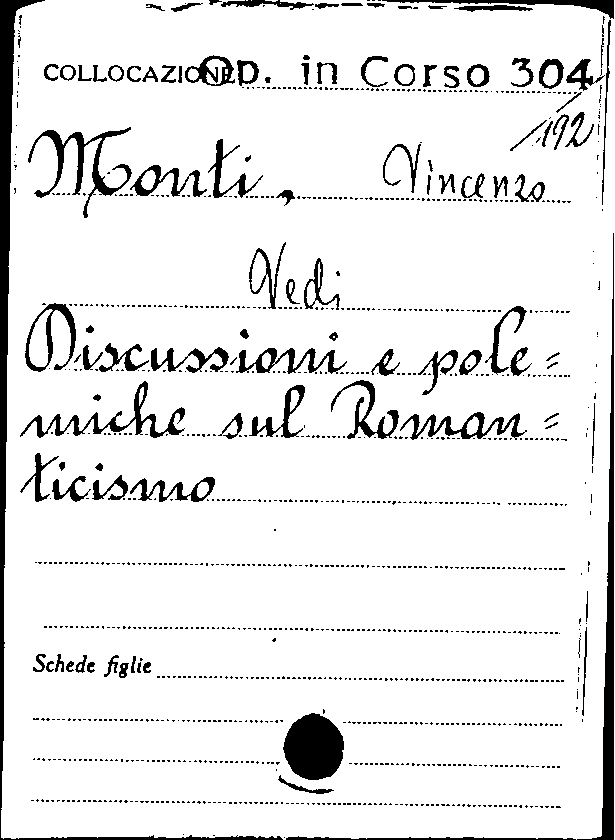 COLLOCAZIONE Op. in Corso 304
/192
Monti, Vincenzo
Vedi
Discussioni e pole=
miche sul Roman=
ticismo
Schede figlie